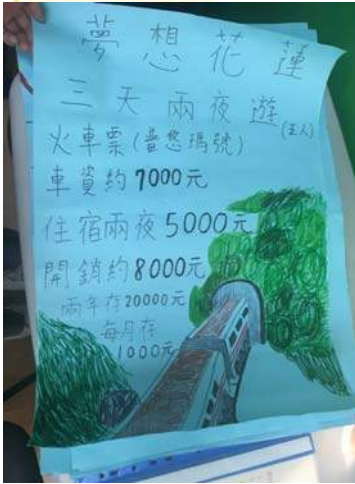 夢想花蓮
三天兩夜遊(五人)
火車票(普悠瑪號)
車資約7000元
住宿兩夜5000元
開銷約8000元
兩年存20000元
每月存
1000元